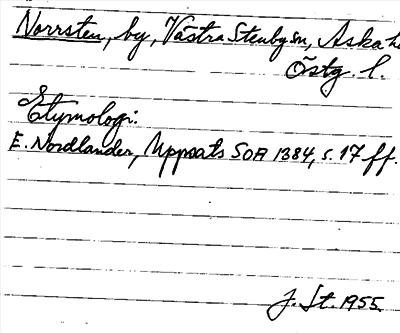 Norrsten, by, Västra Stenby sn, Aska h
Östg. l.
Etymologi:
E. Nordlander, Uppsats SOA 1384, s. 17 ff.
J. St. 1955